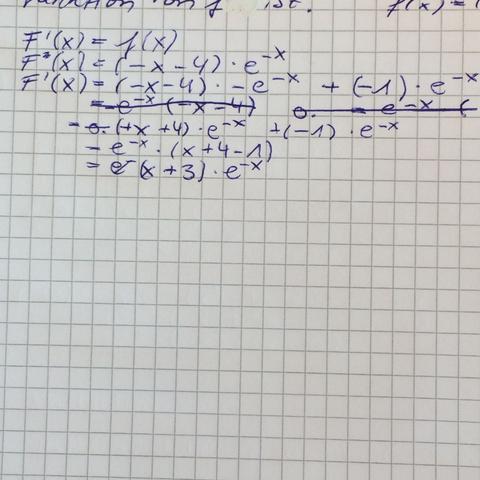 von f ist. f(x) = (
F'(x) = f(x)
F(x) = (-x-4) · e^-x
F'(x) = (-x-4) · -e^-x + (-1) · e^-x
= -e^-x (-x-4) = e^-x (
= (+x+4) · e^-x +(-1) · e^-x
= e^-x · (x+4-1)
= (x+3) · e^-x